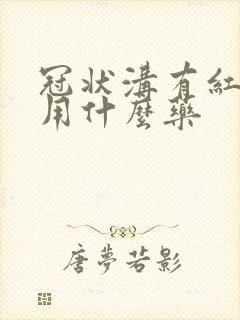 冠状溝有紅
用什麼藥
唐夢若影